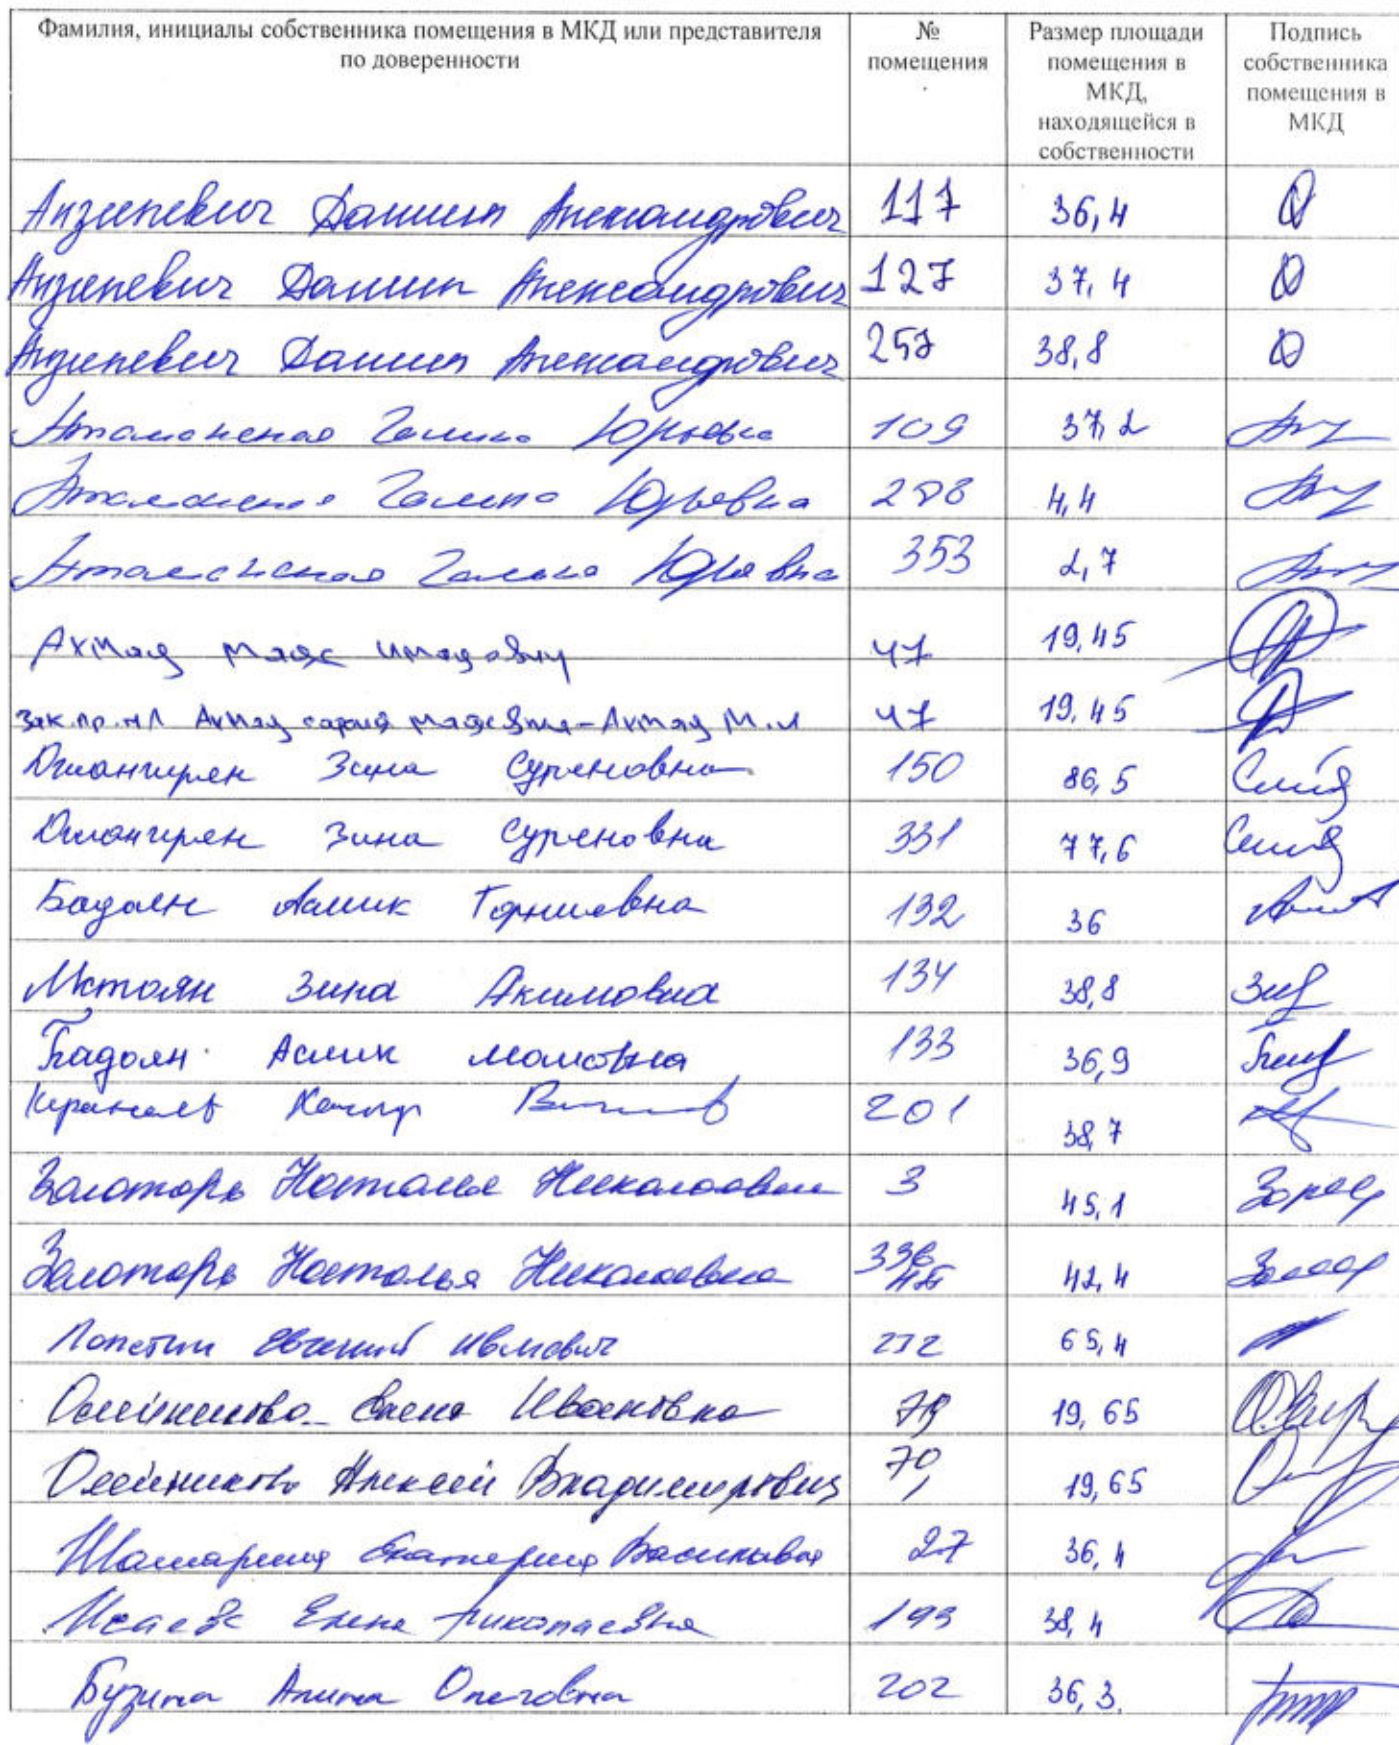 Фамилия, инициалы собственника помещения в МКД или представителя по доверенности № помещения Размер площади помещения в МКД, находящейся в собственности Подпись собственника помещения в МКД
Анзилевич Даниил Александрович 117 36,4
Анзилевич Даниил Александрович 127 37,4
Анзилевич Даниил Александрович 257 38,8
Галина Юрьевна 109 37,2
Галина Юрьевна 4,4
Галина Юрьевна 353 2,7
Ахмад Маяс Имадовну 47 19,45
Зак.пр. н/л Ахмад Маясовна - Ахмад М.И 47 19,45
Джангирян Зина Суреновна 150 86,5
Джангирян Зина Суреновна 331 77,6
Бадоян Аслик Торниевна 132 36
Мстоян Зина Акимовна 134 38,8
Бадоян Аслик Мамовна 133 36,9
201 38,7
Золотарь Наталья Николаевна 3 45,1
Золотарь Наталья Николаевна 42,4
Лопатин Евгений Иванович 65,4
Олейникова Елена Ивановна 19,65
Олейников Алексей Владимирович 19,65
Шамарина Екатерина Васильевна 27 36,4
Исаева Елена Николаевна 193 38,4
Бузина Алина Олеговна 202 36,3.